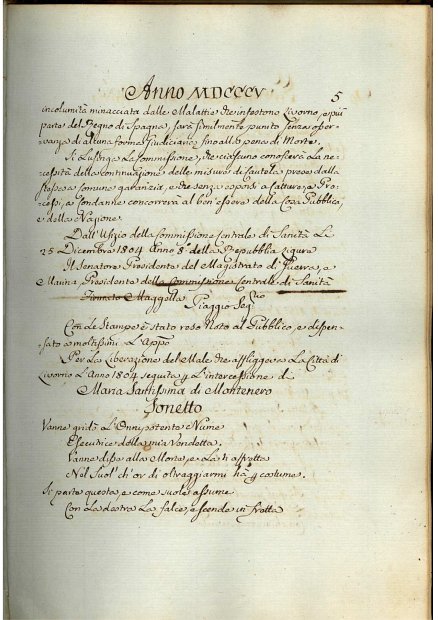 Anno MDCCCV
5
incolumità minacciata dalle Malattie che infestono Livorno, e più
parte del Regno di Spagna, sarà similmente punito senza osser-
vanza di alcuna forma giudiciaria fino alla pena di Morte.
Si lusinga la Commissione, che ciascuno conoscerà la ne-
cessità della continuazione delle misure di Cautela prese dalla
stessa a comune garanzia, e che senza esporsi a catture, a Pro-
cessi, e condanne concorrerà al ben'essere della Cosa Pubblica,
e della Nazione.
Dall'Uffizio della Commissione Centrale di Sanità Li
25 Dicembre 1804 Anno 8° della Repubblica Ligure
Il Senatore Presidente del Magistrato di Guerra, e
Marina Presidente della Commissione Centrale di Sanità
Firmato Maggella
Piaggio Seg.rio
Con le Stampe è stato reso Noto al Pubblico, e dispen-
sato a moltissimi L'App.o
Per La Liberazione del Male che affliggeva La Città di
Livorno L'Anno 1804 seguita p L'intercessione di
Maria Santissima di Montenero
Sonetto
Vanne gridò L'Onnipotente Nume
Esecutrice della mia Vendetta.
Vanne disse alla Morte, e La ti affretta
Nel Suol' ch'or di oltraggiarmi hà p costume.
Si parte questa, e come suole assume
Con La destra La falce, e scende in fretta